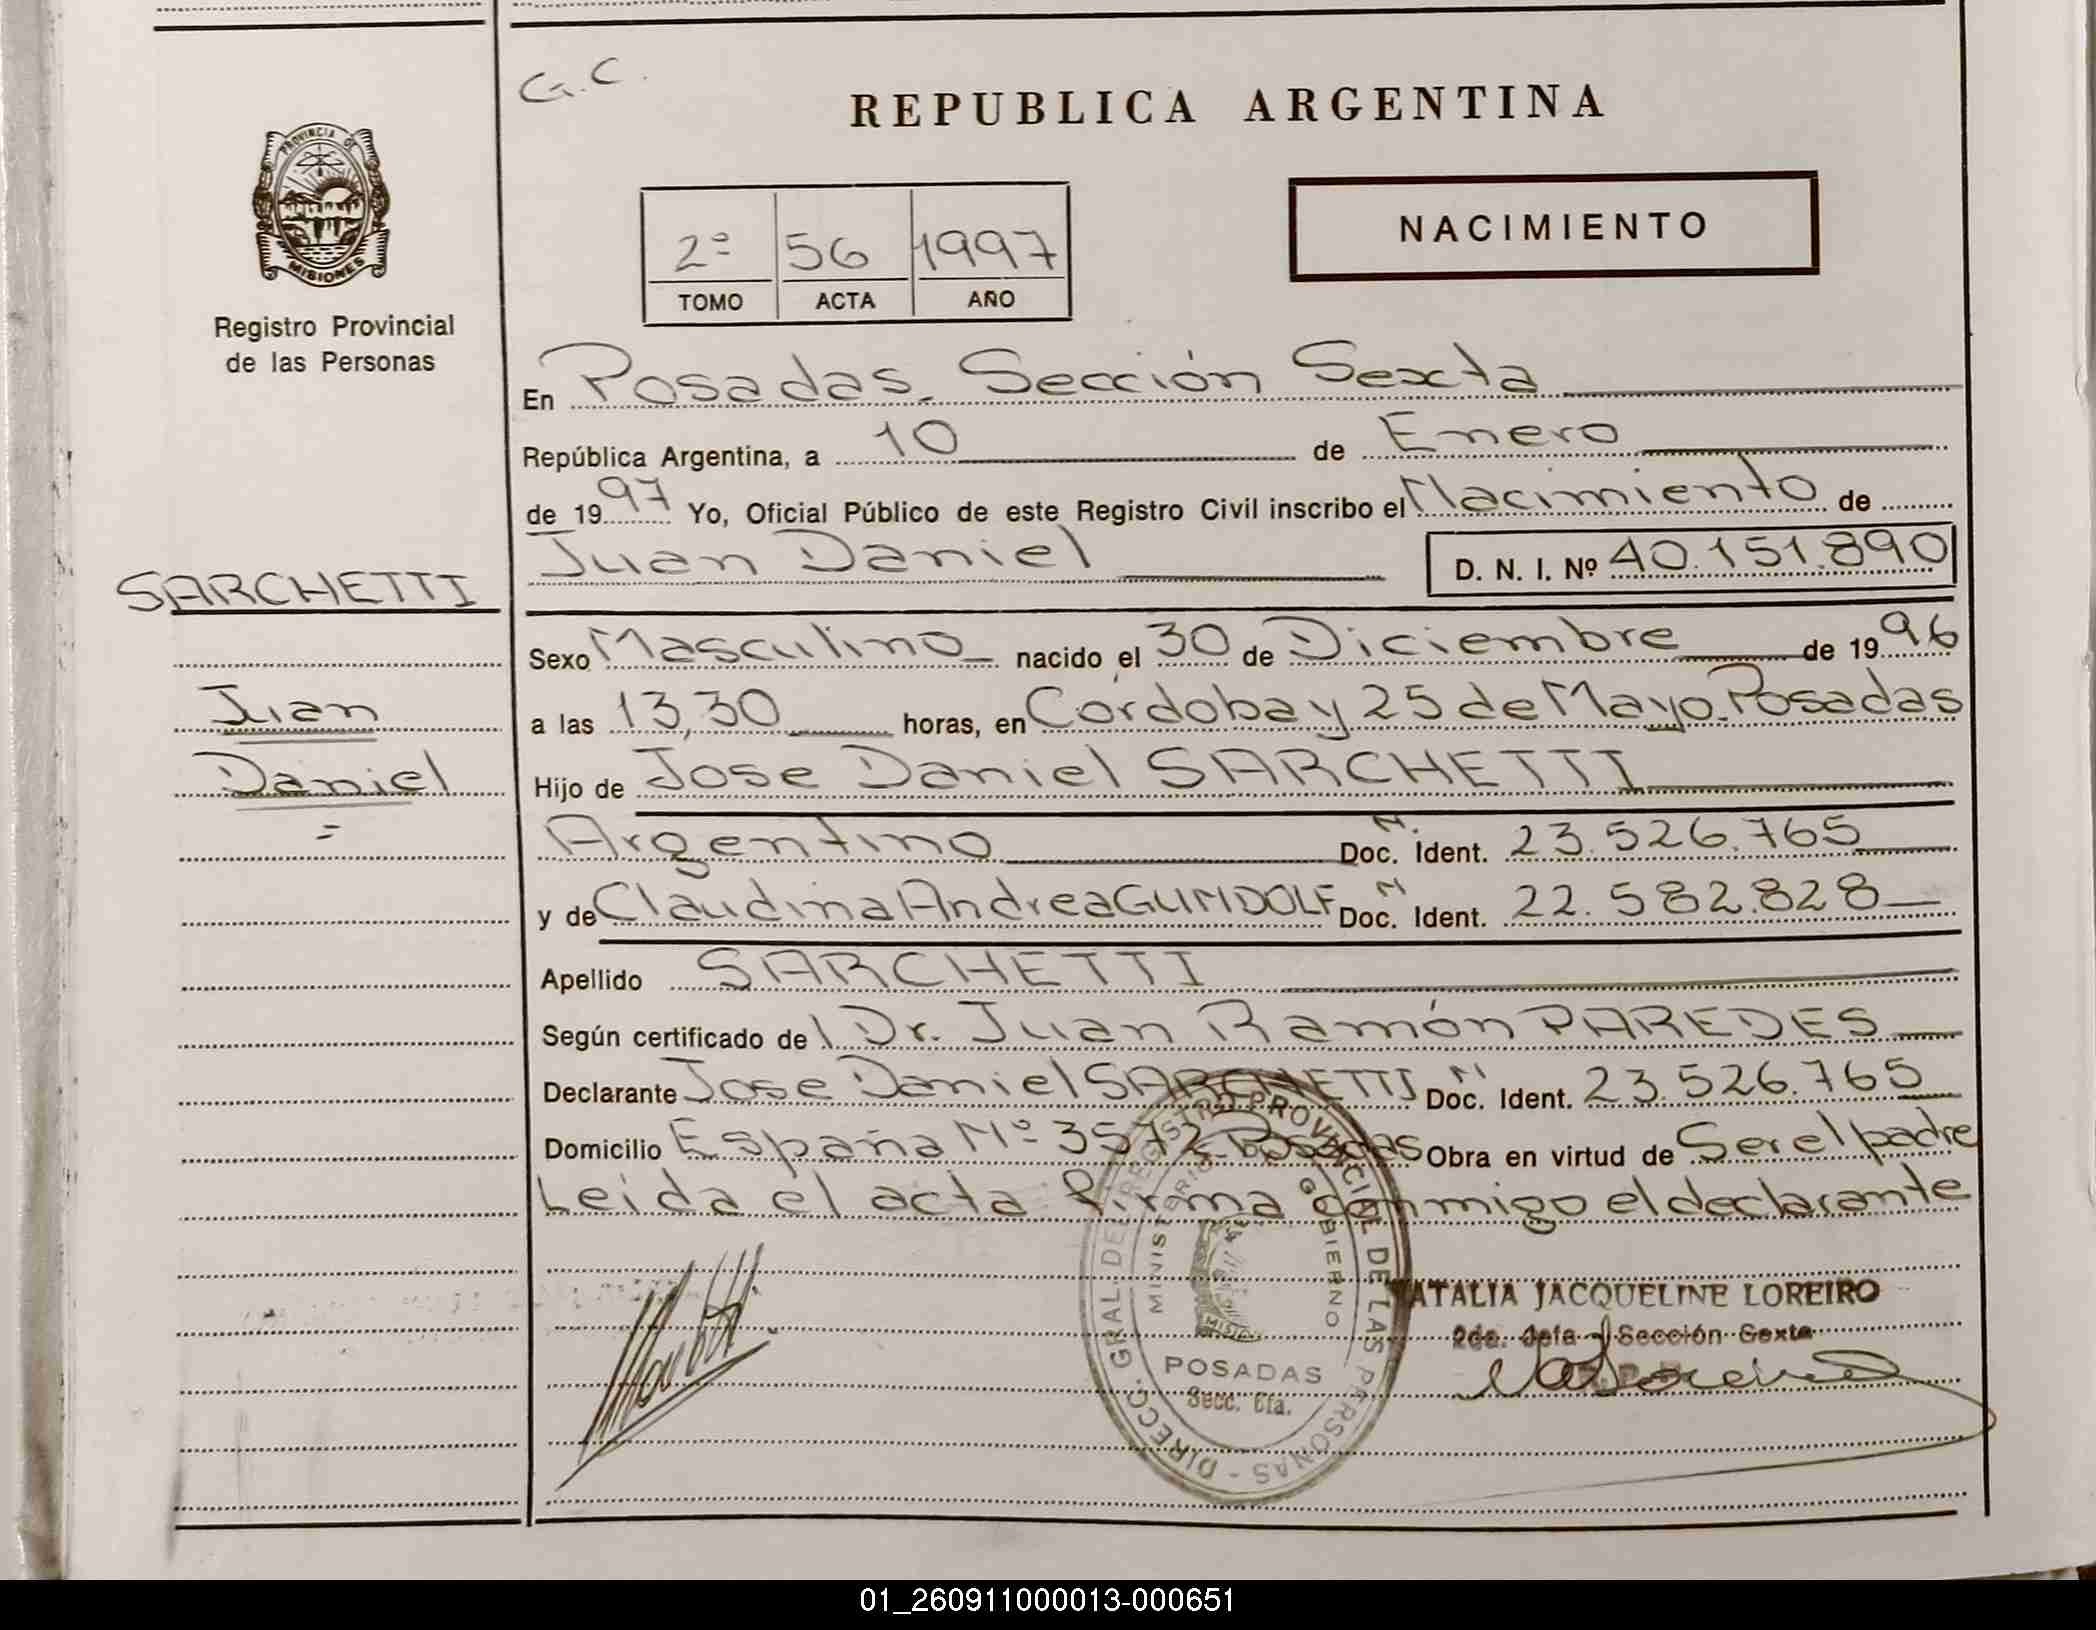 G.C.
REPUBLICA ARGENTINA
PROVINCIA DE
MISIONES
Registro Provincial
de las Personas
2º 56 1997
TOMO ACTA AÑO
NACIMIENTO
En Posadas. Sección Sexta
República Argentina, a 10 de Enero
de 1997 Yo, Oficial Público de este Registro Civil inscribo el Nacimiento de
Juan Daniel D. N. I. Nº 40.151.890
SARCHETTI
Juan
Daniel
=
Sexo Masculino nacido el 30 de Diciembre de 1996
a las 13,30 horas, en Córdoba y 25 de Mayo. Posadas
Hijo de Jose Daniel SARCHETTI
Argentino Doc. N. Ident. 23.526.765
y de Claudina Andrea GUNDOLF Doc. N Ident. 22.582.828
Apellido SARCHETTI
Según certificado de Dr. Juan Ramón PAREDES
Declarante Jose Daniel SARCHETTI Doc. N Ident. 23.526.765
Domicilio España Nº 3572 Posadas Obra en virtud de Ser el padre
Leida el acta firma conmigo el declarante
DIRECC. GRAL. DEL REGISTRO PROVINCIAL DE LAS PERSONAS -
MINISTERIO DE GOBIERNO
POSADAS
Secc. 6ta.
NATALIA JACQUELINE LOREIRO
2da. Jefa Sección Sexta
01_260911000013-000651